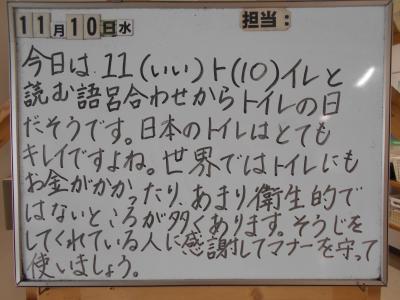 11月10日水 担当:
今日は、11(いい)ト(10)イレと
読む語呂合わせからトイレの日
だそうです。日本のトイレはとても
キレイですよね。世界ではトイレにも
お金がかかったり、あまり衛生的で
はないところが多くあります。そうじを
してくれている人に感謝してマナーを守って
使いましょう。